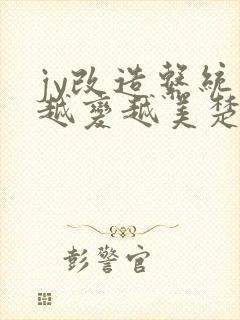 jy改造系統
越變越美楚
彭警官